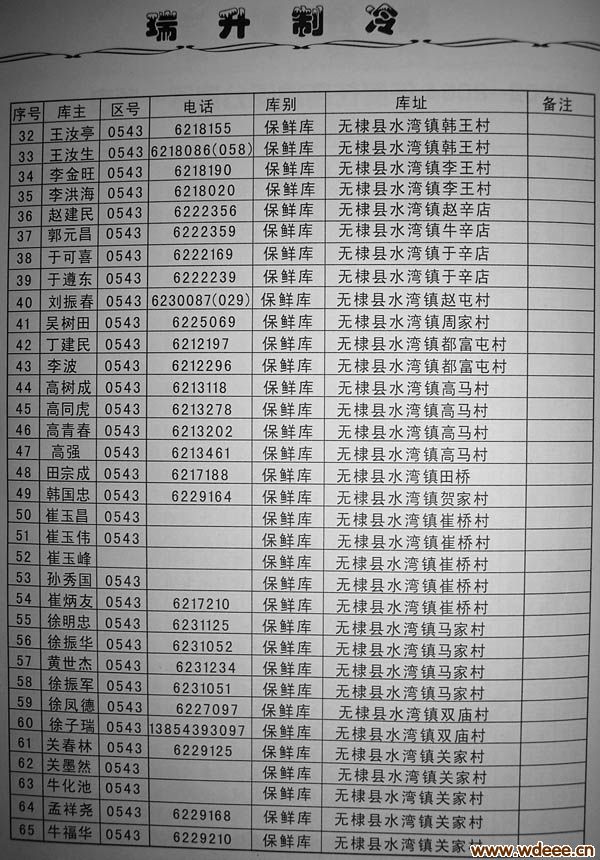 瑞升制冷
序号 库主 区号 电话 库别 库址 备注
32 王汝亭 0543 6218155 保鲜库 无棣县水湾镇韩王村
33 王汝生 0543 6218086(058) 保鲜库 无棣县水湾镇韩王村
34 李金旺 0543 6218190 保鲜库 无棣县水湾镇李王村
35 李洪海 0543 6218020 保鲜库 无棣县水湾镇李王村
36 赵建民 0543 6222356 保鲜库 无棣县水湾镇赵辛店
37 郭元昌 0543 6222359 保鲜库 无棣县水湾镇牛辛店
38 于可喜 0543 6222169 保鲜库 无棣县水湾镇于辛店
39 于遵东 0543 6222239 保鲜库 无棣县水湾镇于辛店
40 刘振春 0543 6230087(029) 保鲜库 无棣县水湾镇赵屯村
41 吴树田 0543 6225069 保鲜库 无棣县水湾镇周家村
42 丁建民 0543 6212197 保鲜库 无棣县水湾镇都富屯村
43 李波 0543 6212296 保鲜库 无棣县水湾镇都富屯村
44 高树成 0543 6213118 保鲜库 无棣县水湾镇高马村
45 高同虎 0543 6213278 保鲜库 无棣县水湾镇高马村
46 高青春 0543 6213202 保鲜库 无棣县水湾镇高马村
47 高强 0543 6213461 保鲜库 无棣县水湾镇高马村
48 田宗成 0543 6217188 保鲜库 无棣县水湾镇田桥
49 韩国忠 0543 6229164 保鲜库 无棣县水湾镇贺家村
50 崔玉昌 0543 保鲜库 无棣县水湾镇崔桥村
51 崔玉伟 0543 保鲜库 无棣县水湾镇崔桥村
52 崔玉峰 保鲜库 无棣县水湾镇崔桥村
53 孙秀国 0543 保鲜库 无棣县水湾镇崔桥村
54 崔炳友 0543 6217210 保鲜库 无棣县水湾镇崔桥村
55 徐明忠 0543 6231125 保鲜库 无棣县水湾镇马家村
56 徐振华 0543 6231052 保鲜库 无棣县水湾镇马家村
57 黄世杰 0543 6231234 保鲜库 无棣县水湾镇马家村
58 徐振军 0543 6231051 保鲜库 无棣县水湾镇马家村
59 徐凤德 0543 6227097 保鲜库 无棣县水湾镇双庙村
60 徐子瑞 0543 13854393097 保鲜库 无棣县水湾镇双庙村
61 关春林 0543 6229125 保鲜库 无棣县水湾镇关家村
62 关墨然 0543 保鲜库 无棣县水湾镇关家村
63 牛化池 0543 保鲜库 无棣县水湾镇关家村
64 孟祥尧 0543 6229168 保鲜库 无棣县水湾镇关家村
65 牛福华 0543 6229210 保鲜库 无棣县水湾镇关家村
www.wdeee.cn